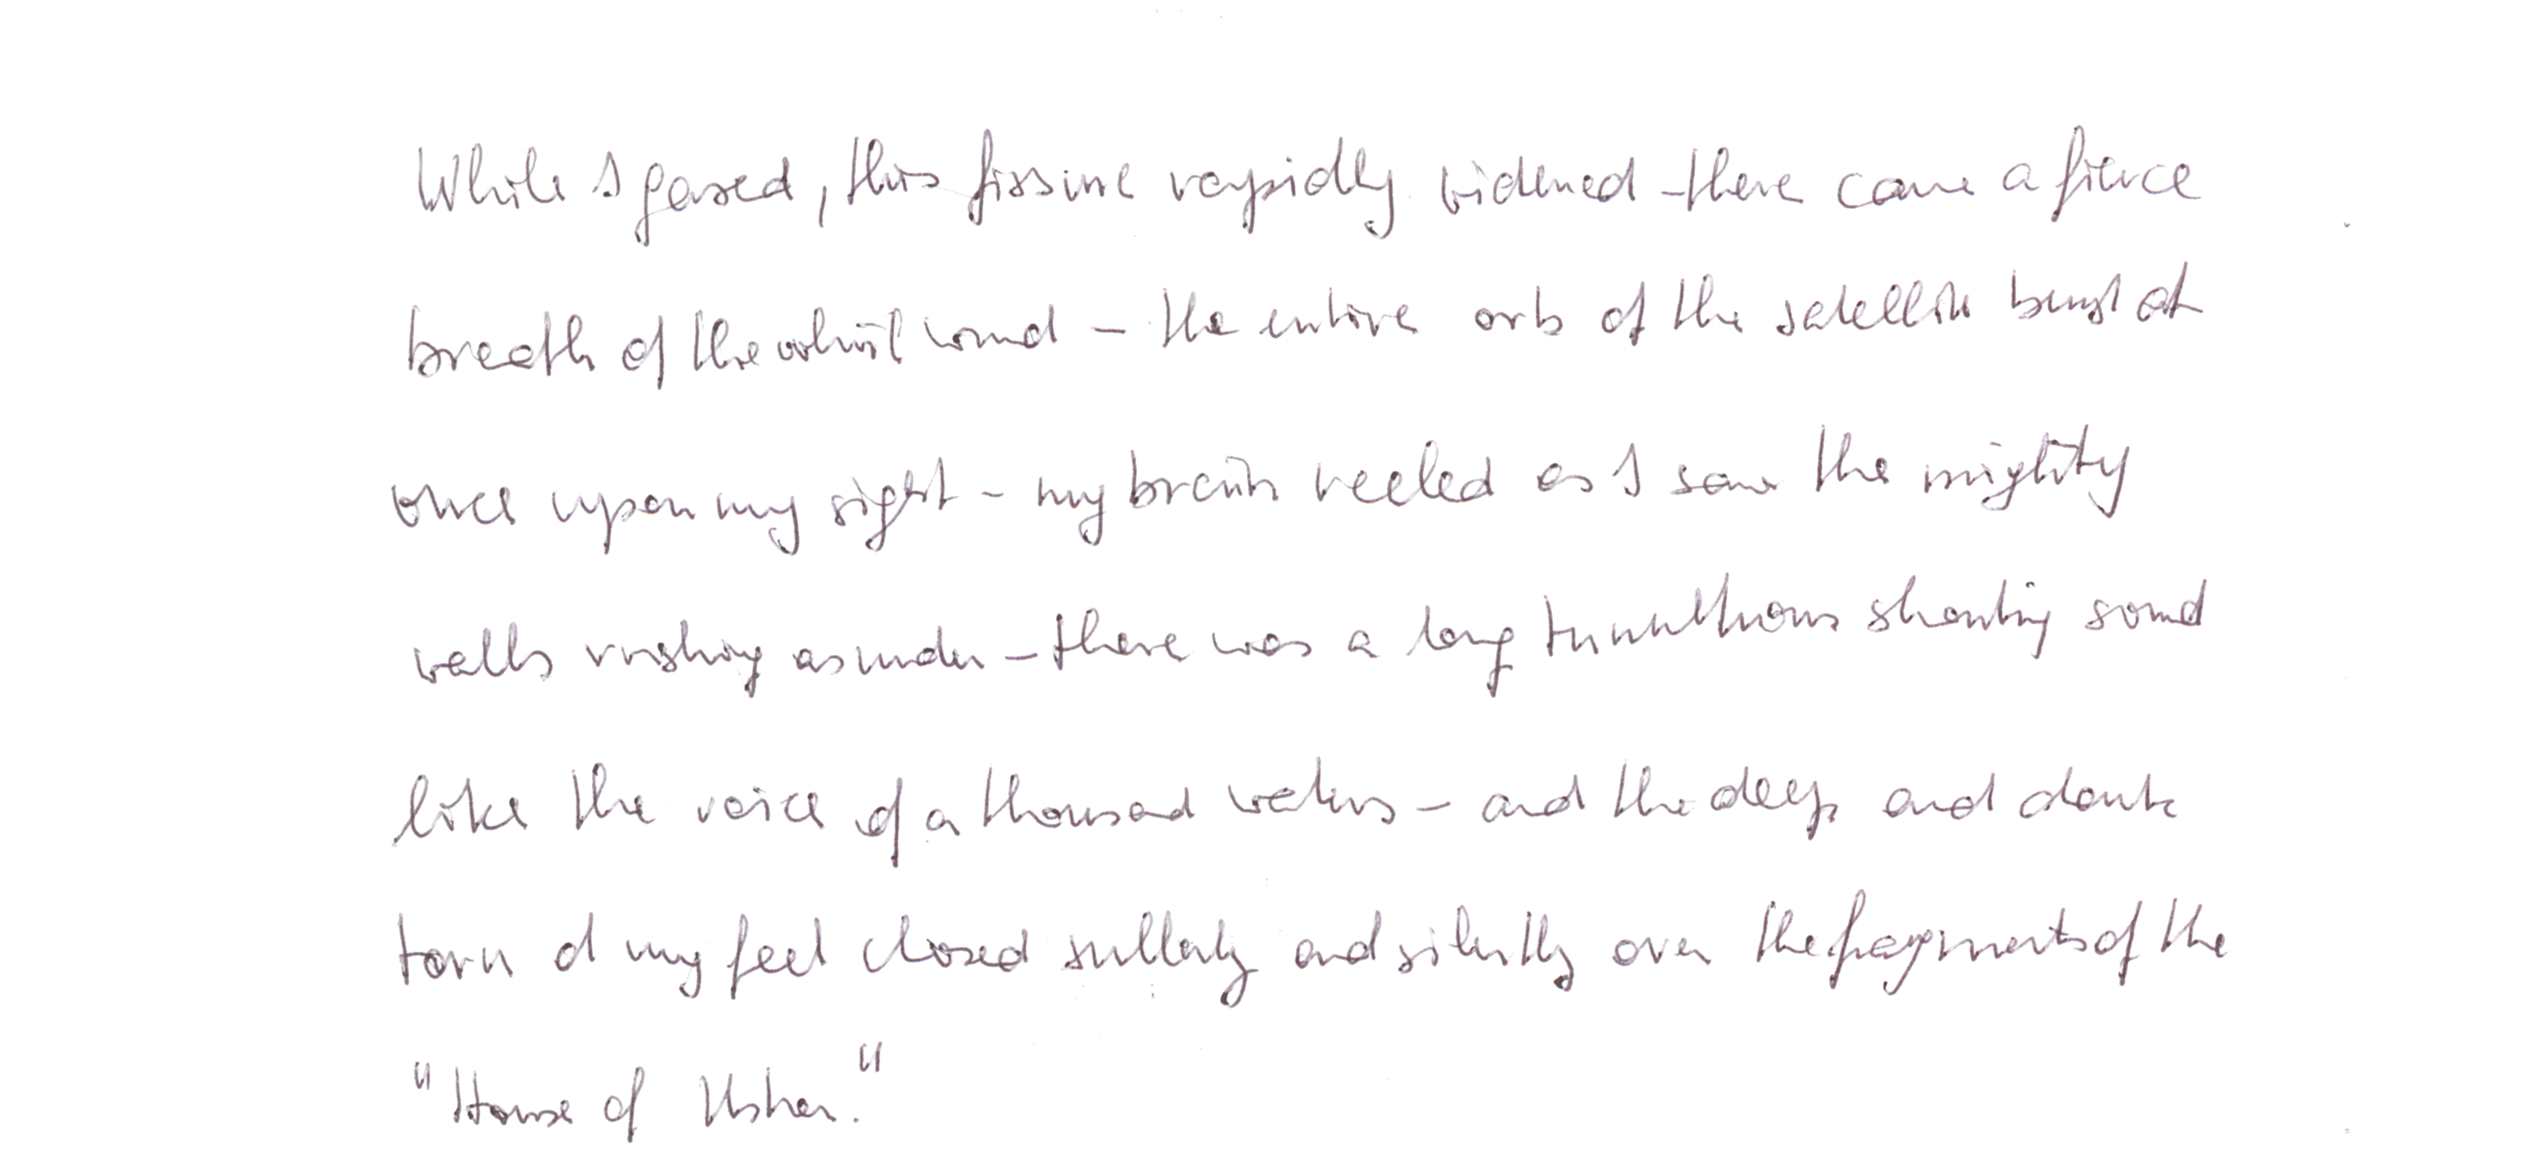 While I gazed, this fissure rapidly widened - there came a fierce
breath of the whirlwind - the entire orb of the satellite burst at
once upon my sight - my brain reeled as I saw the mighty
walls rushing asunder - there was a long tumultuous shouting sound
like the voice of a thousand waters - and the deep and dank
tarn at my feet closed sullenly and silently over the fragments of the
"House of Usher."